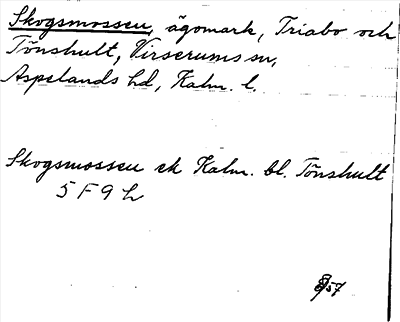 Skogsmossen, ägomark, Triabo och
Tönshult, Virserums sn,
Aspelands hd, Kalm. l.
Skogsmossen ek Kalm. bl. Tönshult
5 F 9 h
57